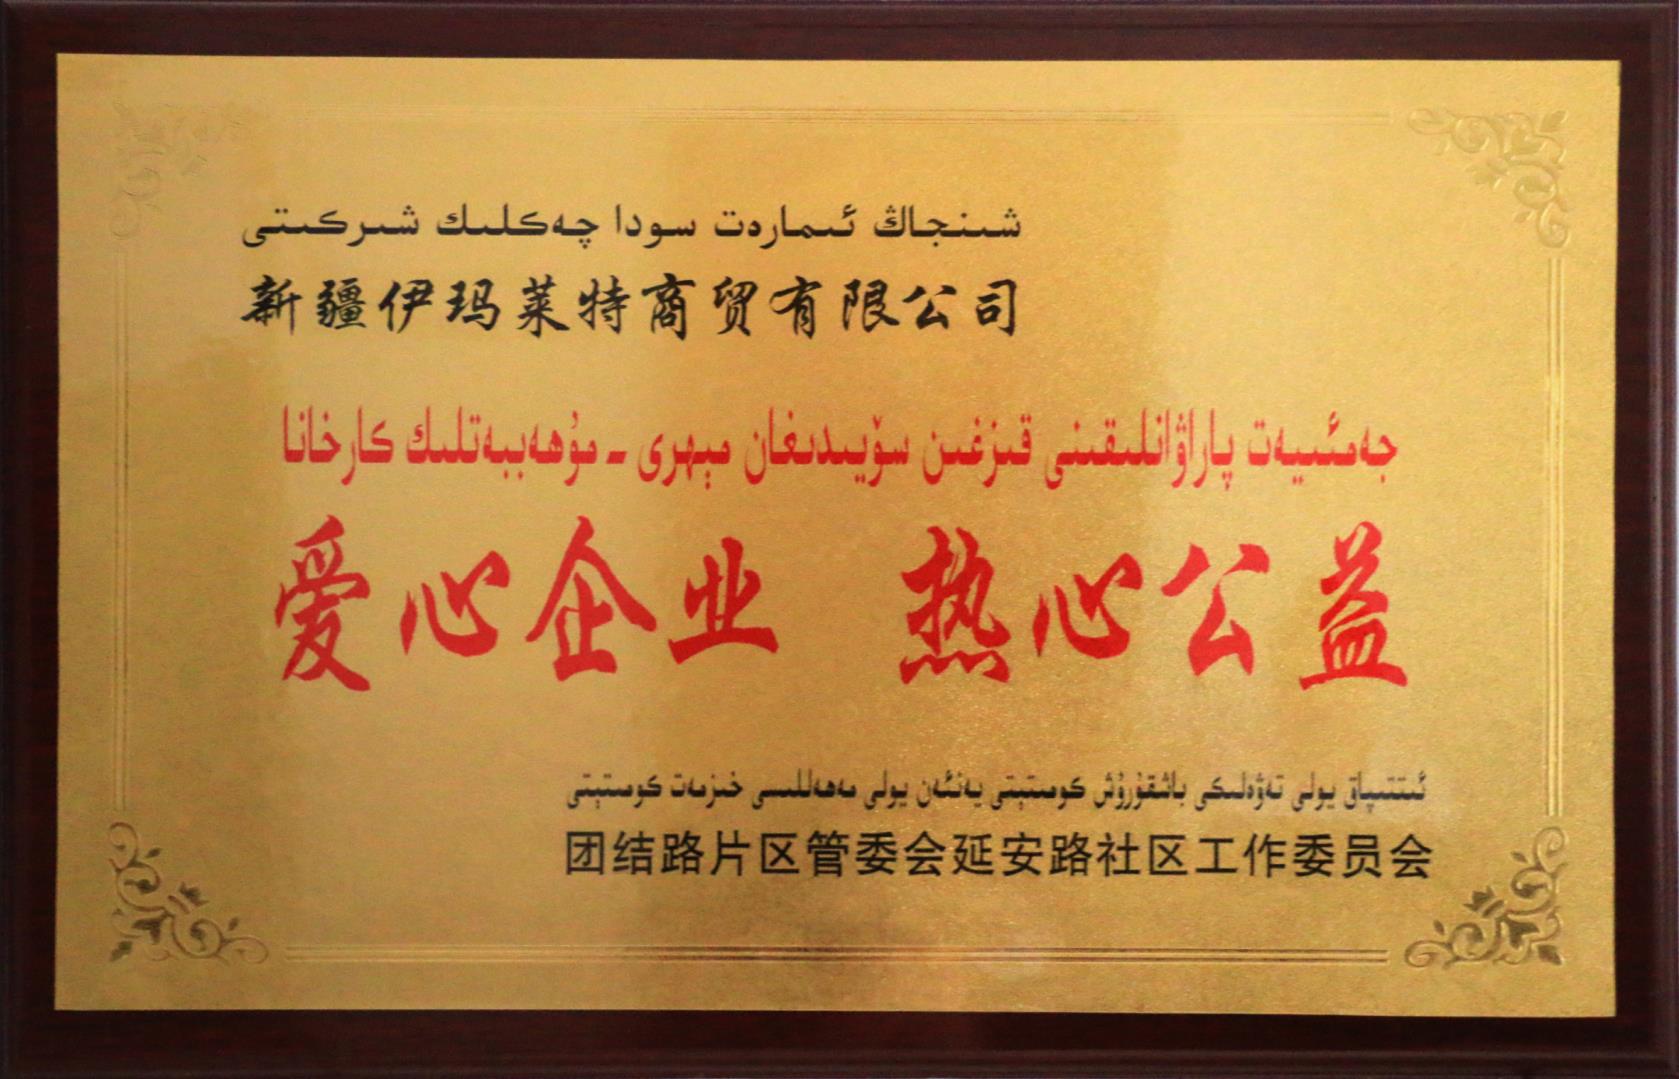 شىنجاڭ ئىمارەت سودا چەكلىك شىركىتى
新疆伊玛莱特商贸有限公司
جەمئىيەت پاراۋانلىقىنى قىزغىن سۆيىدىغان مېھرى - مۇھەببەتلىك كارخانا
爱心企业 热心公益
ئىتتىپاق يولى تەۋەلىكى باشقۇرۇش كومىتېتى يەنئەن يولى مەھەللىسى خىزمەت كومىتېتى
团结路片区管委会延安路社区工作委员会